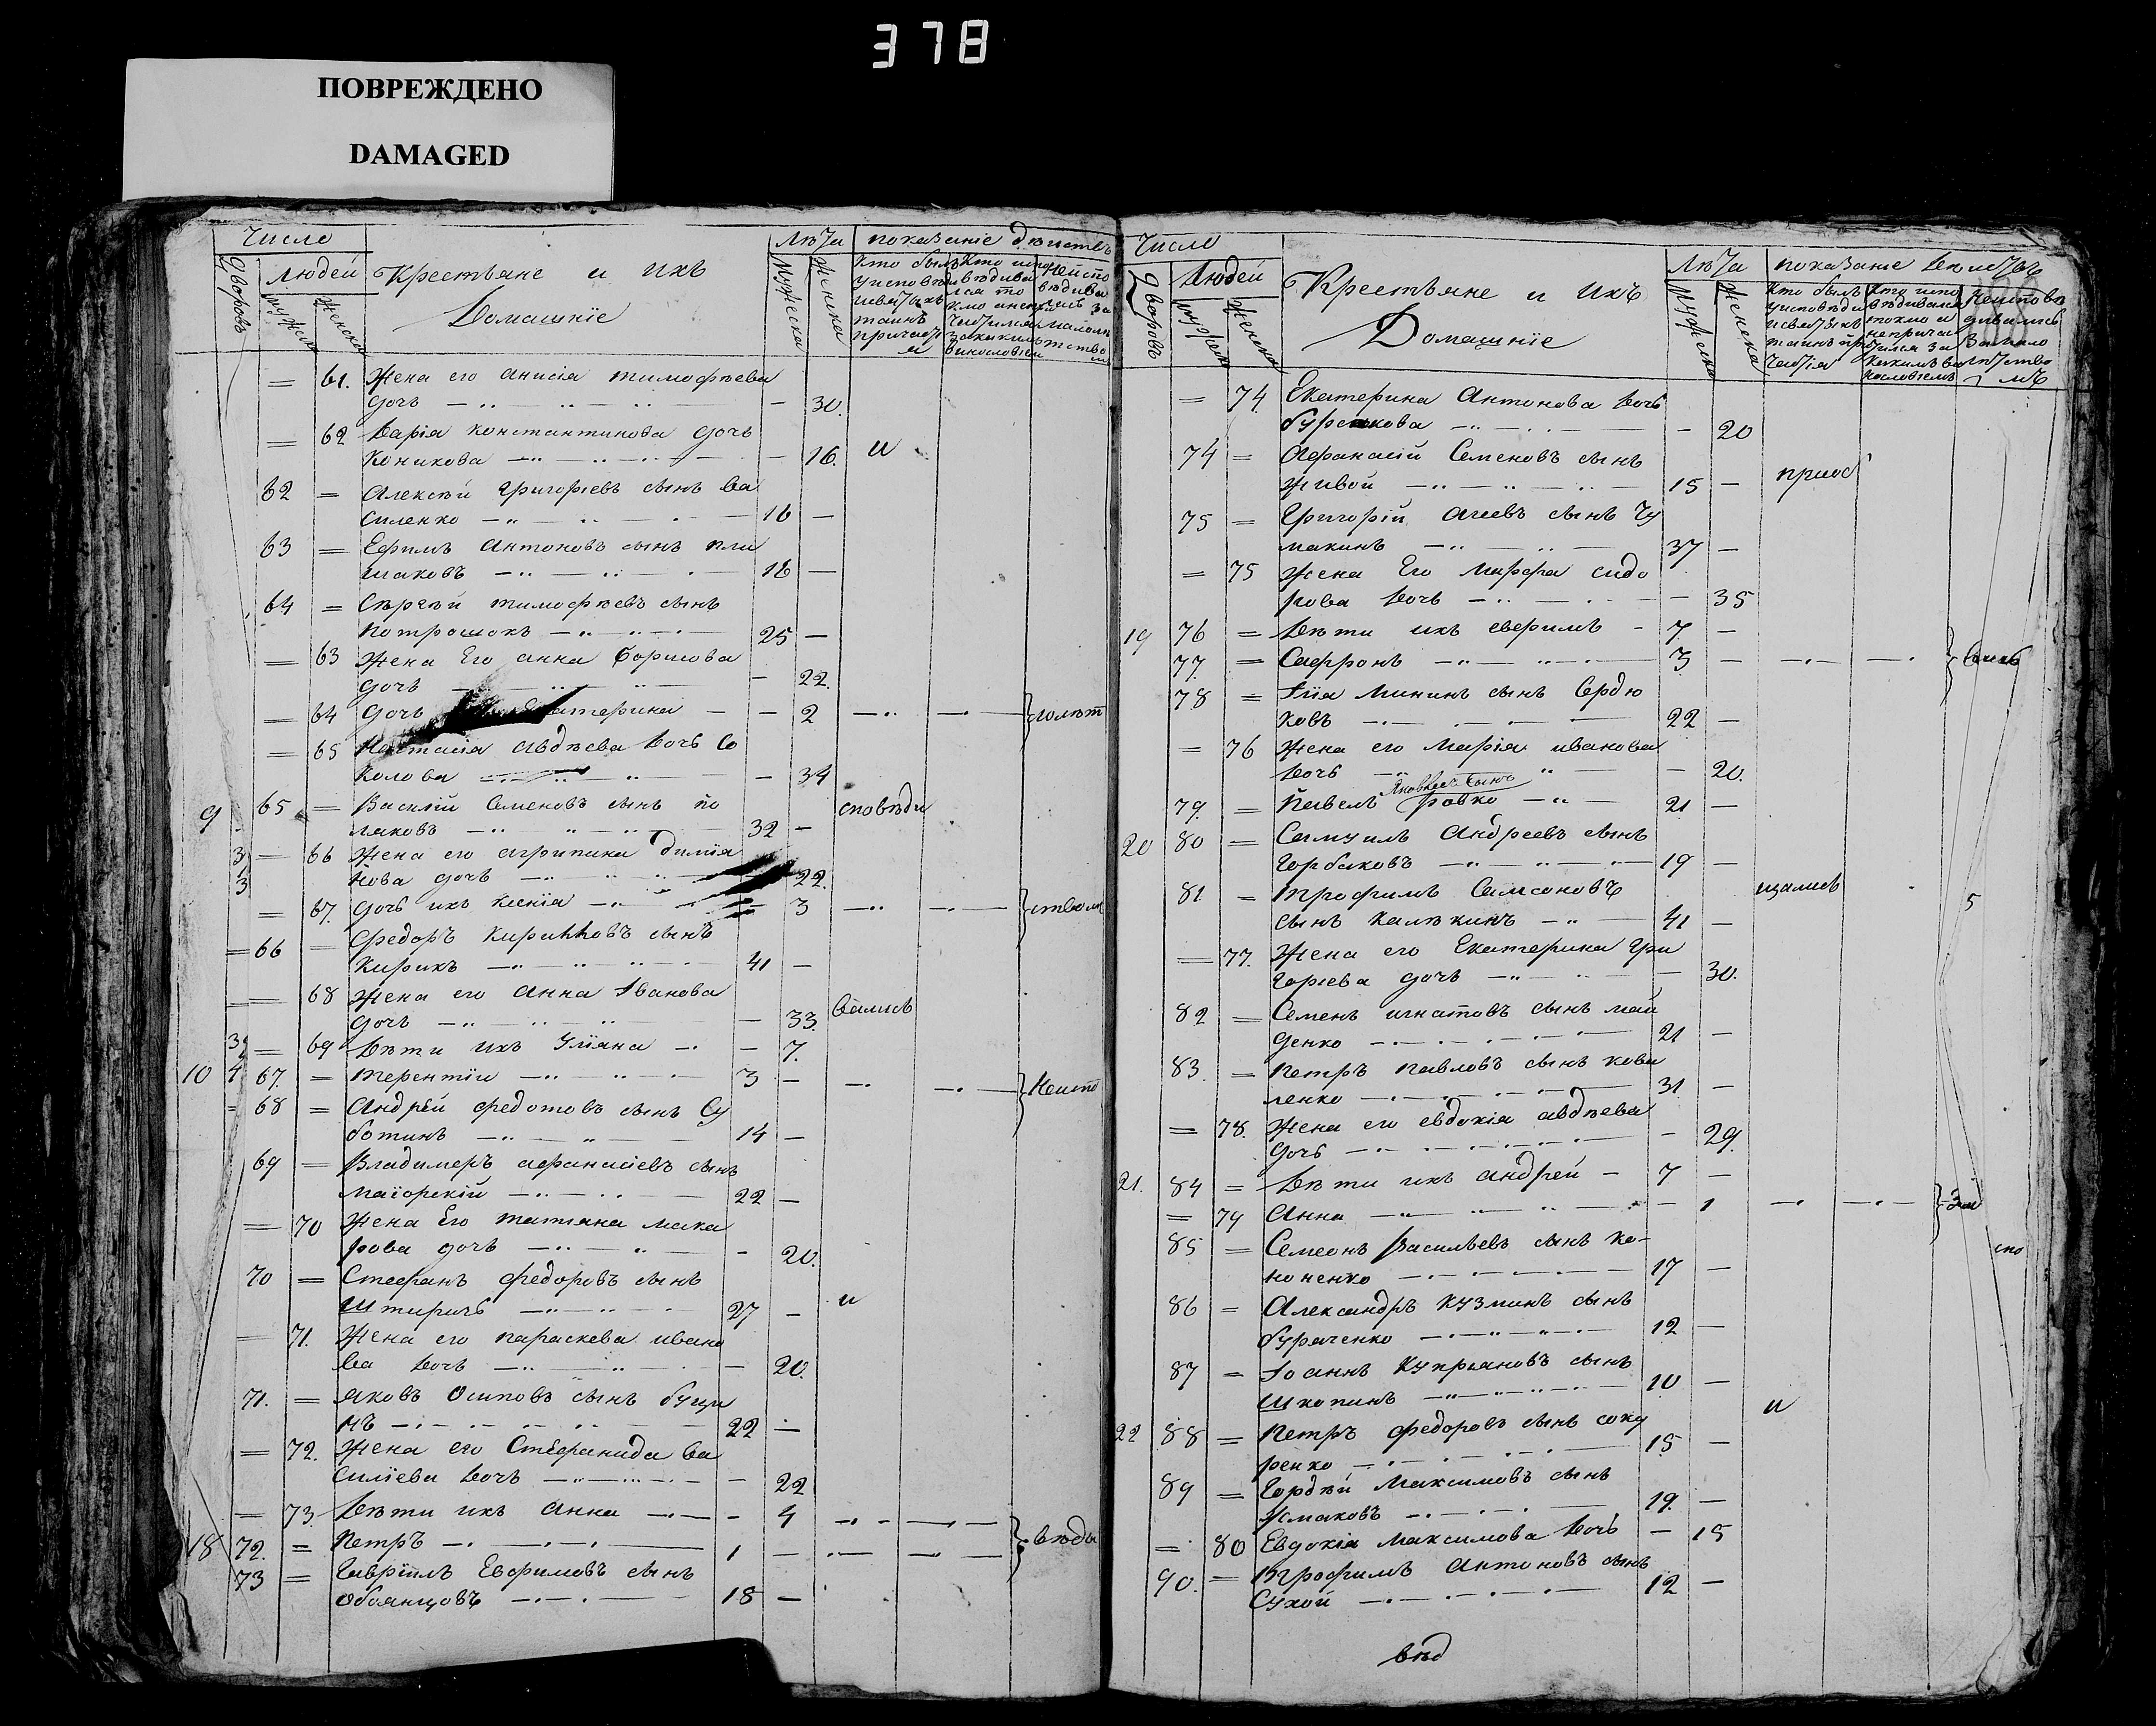 378
ПОВРЕЖДЕНО
DAMAGED
Число
Лѣта показаніе дѣйствъ
дворовъ людей Крестьяне и ихъ
мужеска женска Домашніе
мужеска женска
= 61. Жена его анисія тимофѣева
дочь — 30.
= 62 Дарія константинова дочь
Коникова — 16. и
62 = Алексѣй григорьевъ сынъ ва
силенко 16 —
63 = Ефимъ антоновъ сынъ пли
шаковъ 18 —
64 = Сергѣй тимофѣевъ сынъ
Потрошокъ 25 —
= 63 Жена Его анна борисова
дочь — 22.
= 64 дочь Екатерина — 2
= 65 Настасія авдѣева дочь Со
колова — 34
9 65 = Василій Семеновъ сынъ по сповѣди
лаковъ 32 —
3 = 66 Жена его агрипина димія
3 нова дочь — 22.
= 67. дочь ихъ ксенія — 3 ством
= 66 = Федоръ Кириковъ сынъ
Кирикъ 41 —
= 68 Жена его анна Іванова
дочь — 33. вались
= 69 Дѣти ихъ Уліана — 7.
10 4 67. = терентіи 3 — Неиспо
= 68 = Андрей федотовъ сынъ Су
ботинъ 14 —
69 = Владимеръ афанасіевъ сынъ
Маіорскій 22 —
= 70 Жена Его татіана мака
рова дочь — 20.
70 = Стефанъ федоровъ сынъ
Штиричъ 27 — и
= 71. Жена его параскева ивано
ва дочь — 20.
71. = яковъ Осиповъ сынъ бущи
нъ 22 —
= 72. Жена его Стефанида ва
силіева дочь — 22
= 73. Дѣти ихъ анна — 4
18 72. = Петръ 1 — вѣды
73 = Гавріилъ Евфимовъ сынъ
обоянцовъ 18 —
Число
Лѣта показаніе дѣйствъ
дворовъ Людей Крестьяне и ихъ
мужеска женска Домашніе
мужеска женска
= 74. Екатерина Антонова дочь
бурсакова — 20
74 = Афанасій Семеновъ сынъ
живой 15 — приоб
75 = Григорій агіевъ сынъ Чу
макинъ 37 —
= 75 Жена Его Марфа сидо
рова дочь — 35
19 76 = Дѣти ихъ сверимъ 7 —
77. = Сафронъ 3 —
78 = Іліа Мининъ сынъ Сердю
ковъ 22 —
= 76 Жена его Марія иванова
дочь — 20.
Яковлевъ сынъ
79. = Павелъ ровко 21 —
20 80 = Самуилъ Андреевъ сынъ
Горбаковъ 19 —
81 = трофимъ Самсоновъ щались 5
сынъ калѣкинъ 41 —
= 77. Жена его Екатерина гри
горіева дочь — 30.
82 = Семенъ игнатовъ сынъ май
денко 21 —
83. = Петръ павловъ сынъ кова
ленко 31 —
= 78. Жена его евдокія авдѣева
дочь — 29.
21. 84 = Дѣти ихъ андрей 7 —
= 79 Анна — 1
85 = Семеонъ Васильевъ сынъ ко-
ноненко 17 —
86 = Александръ кузминъ сынъ
бураченко 12 —
87 = Іоаннъ Купріановъ сынъ
Шкопинъ 10 — и
22 88 = Петръ федоровъ сынъ соку
ренко 15 —
89 = Гордѣй Максимовъ сынъ
Усмаковъ 19. —
= 80 Евдокія максимова дочь — 15
90. = Трофимъ Антоновъ сынъ
Сухой 12 —
вѣд